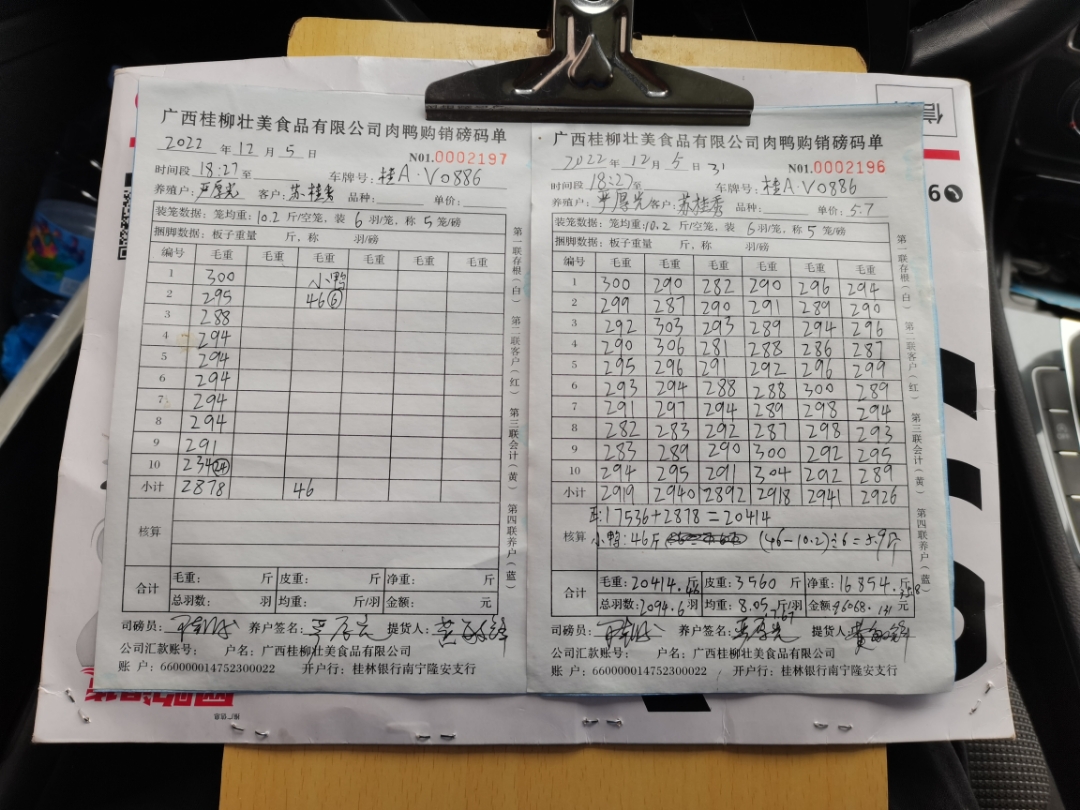 广西桂柳壮美食品有限公司肉鸭购销磅码单
2022 年 12 月 5 日
N01.0002197
时间段 18:27至 车牌号: 桂A·V0886
养殖户: 严厚光 客户: 苏桂秀 品种: 单价:
装笼数据: 笼均重: 10.2 斤/空笼, 装 6 羽/笼, 称 5 笼/磅
捆脚数据: 板子重量 斤, 称 羽/磅
编号 毛重 毛重 毛重 毛重 毛重 毛重
1 300 小鸭
2 295 46⑥
3 288
4 294
5 294
6 294
7 294
8 294
9 291
10 234㉔
小计 2878 46
核算
合计 毛重: 斤 皮重: 斤 净重: 斤
总羽数: 羽 均重: 斤/羽 金额: 元
司磅员: 养户签名: 严厚光 提货人:
公司汇款账号: 户名: 广西桂柳壮美食品有限公司
账 户: 660000014752300022 开户行: 桂林银行南宁隆安支行
第一联存根(白) 第二联客户(红) 第三联会计(黄) 第四联养户(蓝)
广西桂柳壮美食品有限公司肉鸭购销磅码单
2022 年 12 月 5 日
N01.0002196
时间段 18:27至 车牌号: 桂A·V0886
养殖户: 严厚光 客户: 苏桂秀 品种: 单价: 5.7
装笼数据: 笼均重: 10.2 斤/空笼, 装 6 羽/笼, 称 5 笼/磅
捆脚数据: 板子重量 斤, 称 羽/磅
编号 毛重 毛重 毛重 毛重 毛重 毛重
1 300 290 282 290 296 294
2 299 287 290 291 289 290
3 292 303 293 289 294 296
4 290 306 281 288 286 287
5 295 296 291 292 296 299
6 293 294 288 288 300 289
7 291 297 294 289 298 294
8 282 283 292 287 298 293
9 283 289 290 300 292 295
10 294 295 291 304 292 289
小计 2919 2940 2892 2918 2941 2926
17536+2878=20414
核算 小鸭: 46斤 (46-10.2)÷6=5.9斤
合计 毛重: 20414.46 斤 皮重: 3560 斤 净重: 16854. 斤
总羽数: 2094.6 羽 均重: 8.05 斤/羽 金额: 96068.131 元
司磅员: 养户签名: 严厚光 提货人:
公司汇款账号: 户名: 广西桂柳壮美食品有限公司
账 户: 660000014752300022 开户行: 桂林银行南宁隆安支行
第一联存根(白) 第二联客户(红) 第三联会计(黄) 第四联养户(蓝)